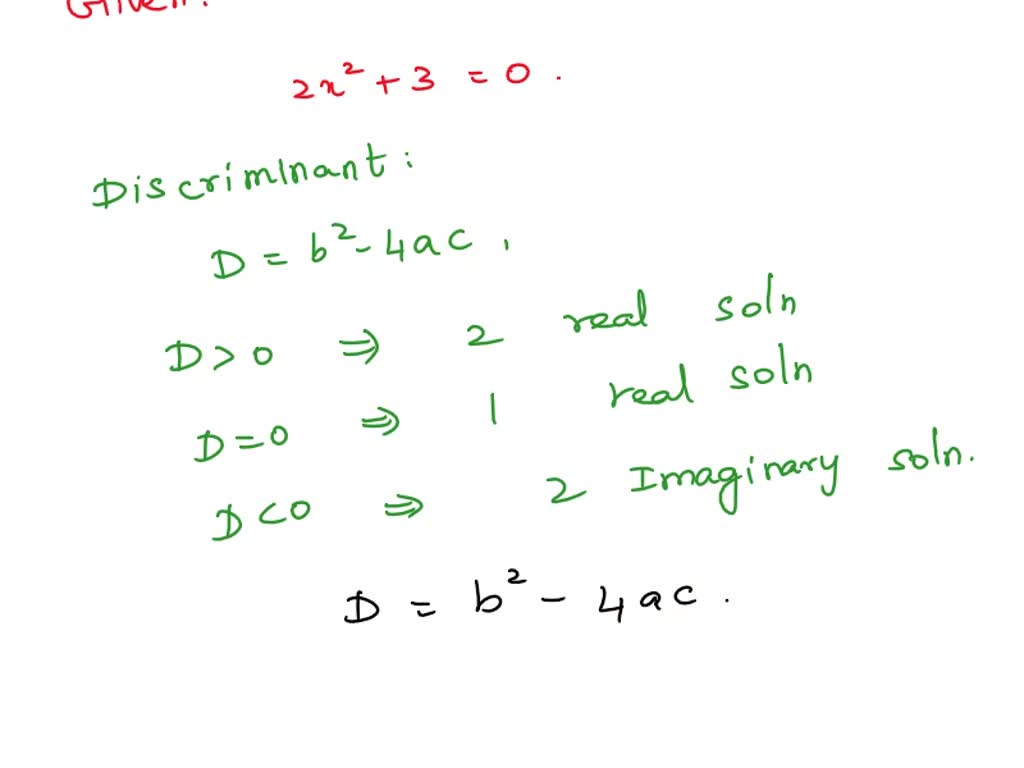 Given:
2x² + 3 = 0 .
Discriminant:
D = b² - 4ac ,
D > 0 ⇒ 2 real soln
D = 0 ⇒ 1 real soln
D < 0 ⇒ 2 Imaginary soln.
D = b² - 4ac .